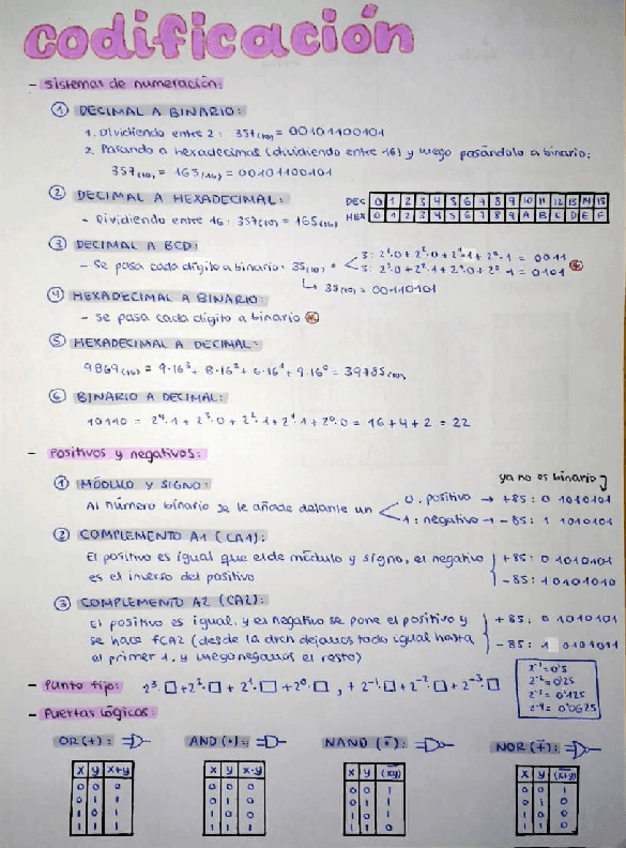 codificación
- sistemas de numeración:
① DECIMAL A BINARIO:
1. Dividiendo entre 2: 357(10) = 00101100101
2. Pasando a hexadecimal (dividiendo entre 16) y luego pasándolo a binario:
357(10) = 165(16) = 00101100101
② DECIMAL A HEXADECIMAL:
- Dividiendo entre 16: 357(10) = 165(16)
DEC 0 1 2 3 4 5 6 7 8 9 10 11 12 13 14 15
HEX 0 1 2 3 4 5 6 7 8 9 A B C D E F
③ DECIMAL A BCD:
- Se pasa cada dígito a binario. 35(10) =
3: 2³·0 + 2²·0 + 2¹·1 + 2⁰·1 = 0011
5: 2³·0 + 2²·1 + 2¹·0 + 2⁰·1 = 0101
35(10) = 00110101
④ HEXADECIMAL A BINARIO:
- Se pasa cada dígito a binario
⑤ HEXADECIMAL A DECIMAL:
9869(16) = 9·16³ + 8·16² + 6·16¹ + 9·16⁰ =
⑥ BINARIO A DECIMAL:
10110 = 2⁴·1 + 2³·0 + 2²·1 + 2¹·1 + 2⁰·0 = 16 + 4 + 2 = 22
- Positivos y negativos:
ya no es binario
① MÓDULO Y SIGNO:
Al número binario se le añade delante un
0: positivo → +85: 0 1010101
1: negativo → -85: 1 1010101
② COMPLEMENTO A1 (CA1):
El positivo es igual que el de módulo y signo, el negativo
es el inverso del positivo
+85: 0 1010101
-85: 1 0101010
③ COMPLEMENTO A2 (CA2):
El positivo es igual, y el negativo se pone el positivo y
se hace fCA2 (desde la drch dejamos todo igual hasta
el primer 1, y luego negamos el resto)
+85: 0 1010101
-85: 1 0101011
- Punto fijo: 2³·□ + 2²·□ + 2¹·□ + 2⁰·□ , + 2⁻¹·□ + 2⁻²·□ + 2⁻³·□
2⁻¹ = 0'5
2⁻² = 0'25
2⁻³ = 0'125
2⁻⁴ = 0'0625
- Puertas lógicas:
OR (+):
x y x+y
0 0 0
0 1 1
1 0 1
1 1 1
AND (·):
x y x·y
0 0 0
0 1 0
1 0 0
1 1 1
NAND (·̅):
x y (x̅y̅)
0 0 1
0 1 1
1 0 1
1 1 0
NOR (+̅):
x y (x̅+̅y̅)
0 0 1
0 1 0
1 0 0
1 1 0